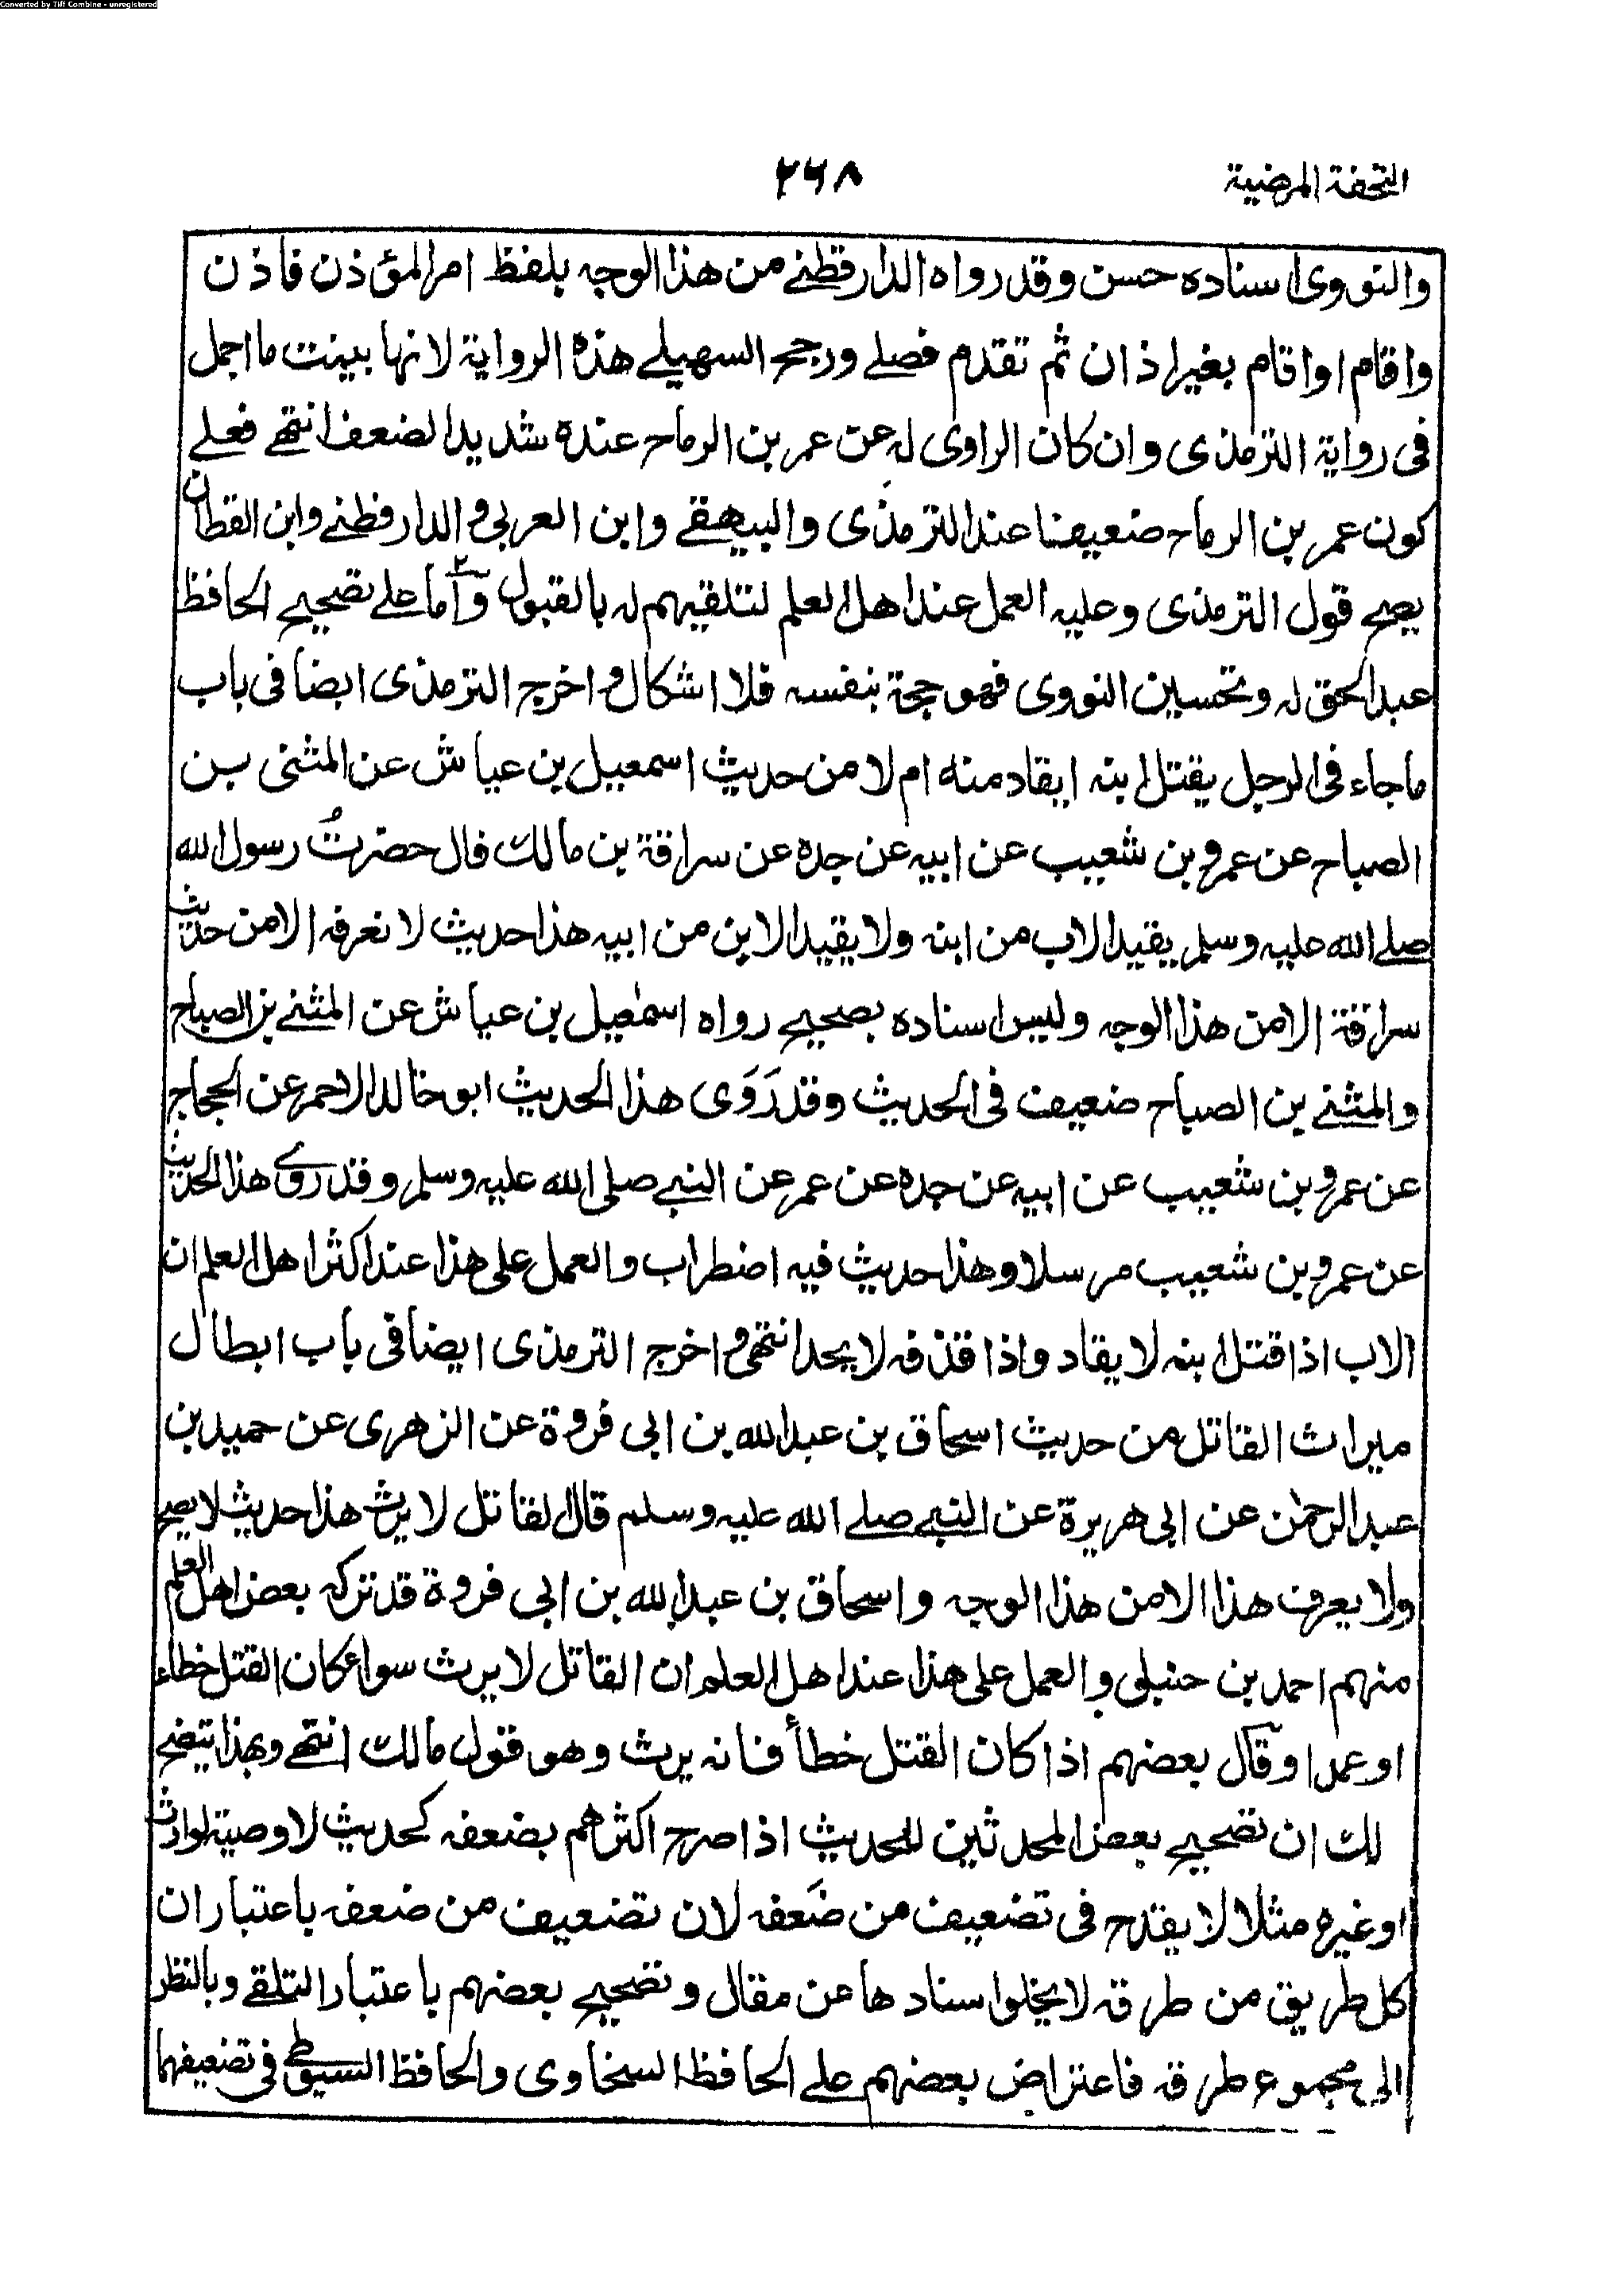 Converted by Tiff Combine - unregistered
التحفة المرضية
۲۶۸
والنووى اسناده حسن وقد رواه الدارقطنے من هذا الوجه بلفظ امر المؤذن فاذن
واقام او اقام بغير اذان ثم تقدم فصلے ورجح السهيلے هذه الرواية لانها بينت ما اجمل
فى رواية الترمذى وان كان الراوى له عن عمر بن الرماح عنده شديد الضعف انتهے فعلے
كون عمر بن الرماح ضعيفا عند الترمذى والبيهقے وابن العربى والدارقطنے وابن القطان
يصح قول الترمذى وعليه العمل عند اهل العلم لتلقيهم له بالقبول واما علے تصحيح الحافظ
عبد الحق له وتحسين النووى فهو حجة بنفسه فلا اشكال واخرج الترمذى ايضا فى باب
ما جاء فى الرجل يقتل ابنه ايقاد منه ام لا من حديث اسمعيل بن عياش عن المثنى بن
الصباح عن عمرو بن شعيب عن ابيه عن جده عن سراقة بن مالك قال حضرتُ رسول الله
صلے الله عليه وسلم يقيد الاب من ابنه ولا يقيد الابن من ابيه هذا حديث لا نعرفه الا من حديث
سراقة الا من هذا الوجه وليس اسناده بصحيح رواه اسمٰعيل بن عياش عن المثنے بن الصباح
والمثنے بن الصباح ضعيف فى الحديث وقد رَوَى هذا الحديث ابو خالد الاحمر عن الحجاج
عن عمرو بن شعيب عن ابيه عن جده عن عمر عن النبے صلى الله عليه وسلم وقد روى هذا الحديث
عن عمرو بن شعيب مرسلا وهذا حديث فيه اضطراب والعمل على هذا عند اكثر اهل العلم ان
الاب اذا قتل ابنه لا يقاد واذا قذفه لا يحد انتهى واخرج الترمذى ايضا فى باب ابطال
ميراث القاتل من حديث اسحاق بن عبد الله بن ابى فروة عن الزهرى عن حميد بن
عبد الرحمٰن عن ابى هريرة عن النبے صلے الله عليه وسلم قال القاتل لا يرث هذا حديث لا يصح
ولا يعرف هذا الا من هذا الوجه واسحاق بن عبد الله بن ابى فروة قد تركه بعض اهل العلم
منهم احمد بن حنبل والعمل على هذا عند اهل العلم ان القاتل لا يرث سواء كان القتل خطاء
او عمدا وقال بعضهم اذا كان القتل خطأ فانه يرث وهو قول مالك انتهے وبهذا يتضح
لك ان تصحيح بعض المحدثين للحديث اذا صرح اكثرهم بضعفه كحديث لا وصية لوارث
او غيره مثلا لا يقدح فى تضعيف من ضَعفه لان تضعيف من ضعفه باعتبار ان
كل طريق من طرقه لا يخلو اسنادها عن مقال وتصحيح بعضهم باعتبار التلقے وبالنظر
الى مجموع طرقه فاعتراض بعضهم علے الحافظ السخاوى والحافظ السيوطے فى تضعيفهما